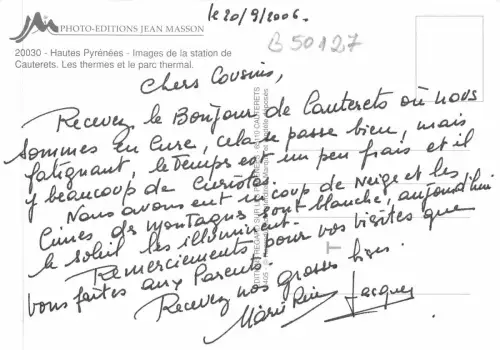 le 20/9/2006.
PHOTO-EDITIONS JEAN MASSON
B 50127
20030 - Hautes Pyrénées - Images de la station de
Cauterets. Les thermes et le parc thermal.
Chers Cousins,
Recevez le Bonjour de Cauterets où nous
sommes en Cure, cela se passe bien, mais
fatignant, le temps est un peu frais et il
y beaucoup de Curistes.
Nous avons eut un coup de Neige et les
Cimes des montagnes sont blanche, aujourd'hui
le soleil les illuminent.
Remerciements pour vos visites que
vous faites aux Parents.
Recevez nos grosses bises.
Marie Jacques
CAUTERETS